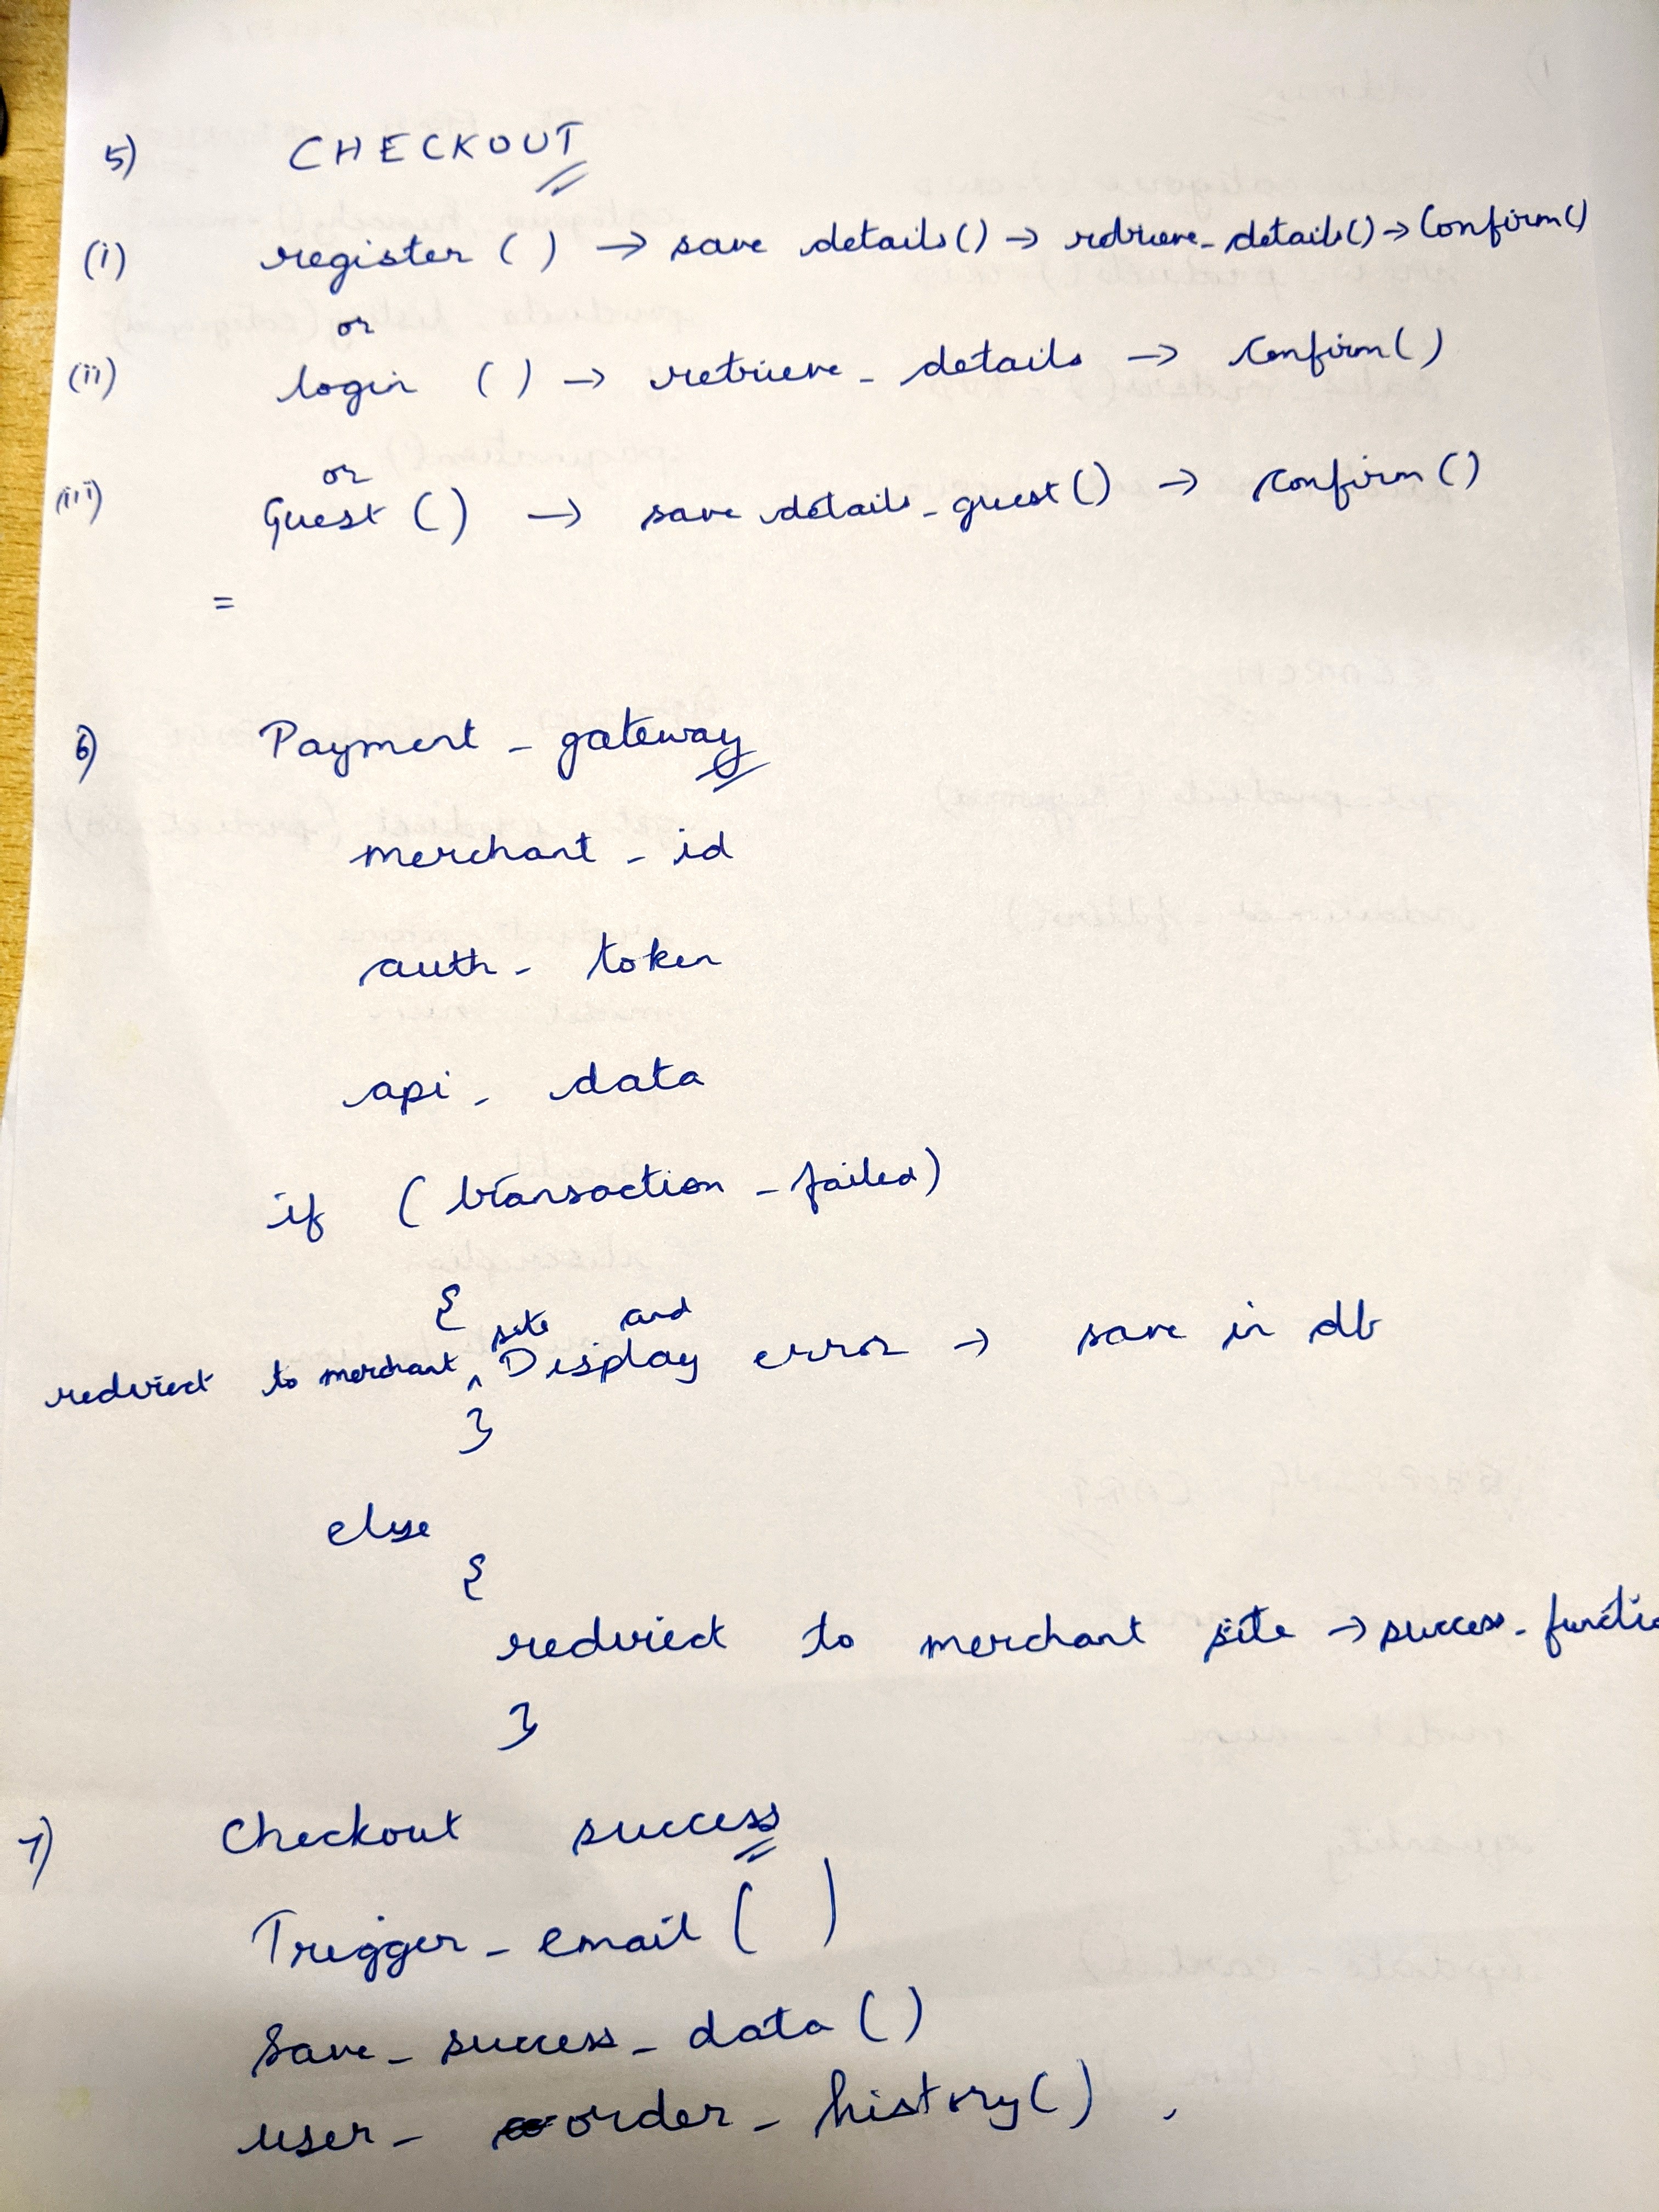 5) CHECKOUT
(i) register ( ) → save details() → retrieve_details() → Confirm()
or
(ii) login ( ) → retrieve_details → Confirm()
or
(iii) Guest ( ) → save details_guest() → Confirm()
=
6) Payment_gateway
merchant_id
auth_token
api_data
if (transaction_failed)
{
site and
redirect to merchant ^ Display error → save in db
}
else
{
redirect to merchant site → success_functio
}
7) Checkout success
Trigger_email ( )
Save_success_data ( )
user_order_history()